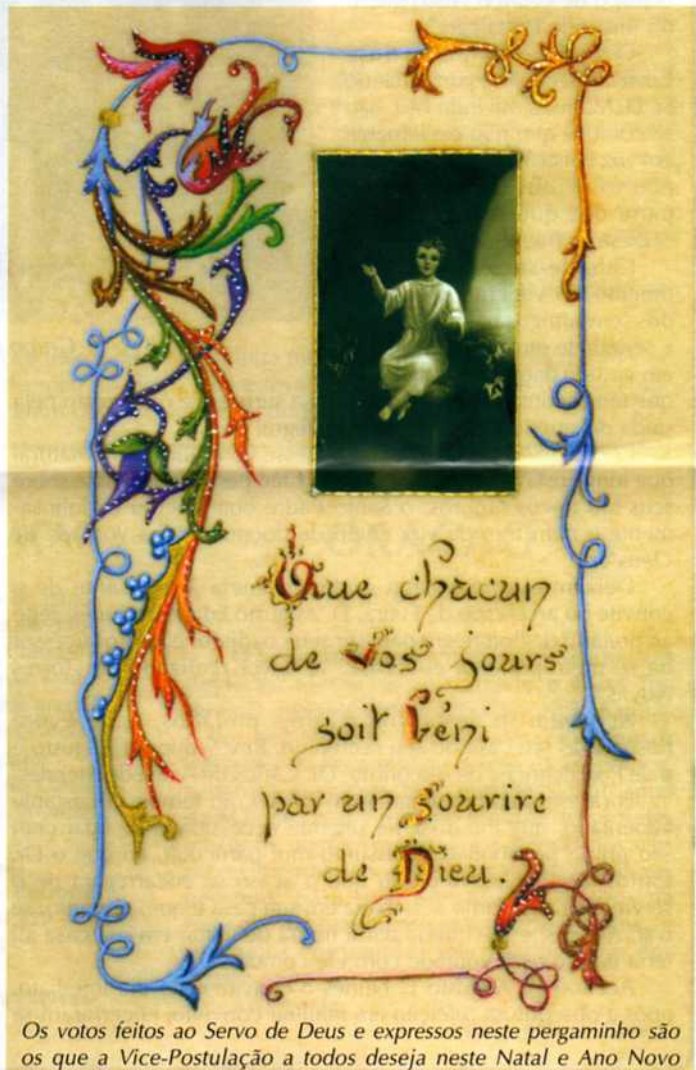 Que chacun
de vos jours
soit béni
par un sourire
de Dieu.
Os votos feitos ao Servo de Deus e expressos neste pergaminho são
os que a Vice-Postulação a todos deseja neste Natal e Ano Novo